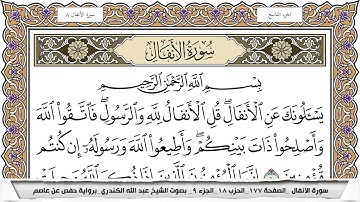 الجزء التاسع
سورة الأنفال ٨
سُورَةُ الأَنفَالِ
بِسْمِ اللَّهِ الرَّحْمَٰنِ الرَّحِيمِ
يَسْـَٔلُونَكَ عَنِ ٱلْأَنفَالِ ۖ قُلِ ٱلْأَنفَالُ لِلَّهِ وَٱلرَّسُولِ ۖ فَٱتَّقُوا۟ ٱللَّهَ
وَأَصْلِحُوا۟ ذَاتَ بَيْنِكُمْ ۖ وَأَطِيعُوا۟ ٱللَّهَ وَرَسُولَهُۥٓ إِن كُنتُم
سورة الأنفال _الصفحة ١٧٧_ الحزب ١٨_ الجزء ٩_ بصوت الشيخ عبد الله الكندري _برواية حفص عن عاصم